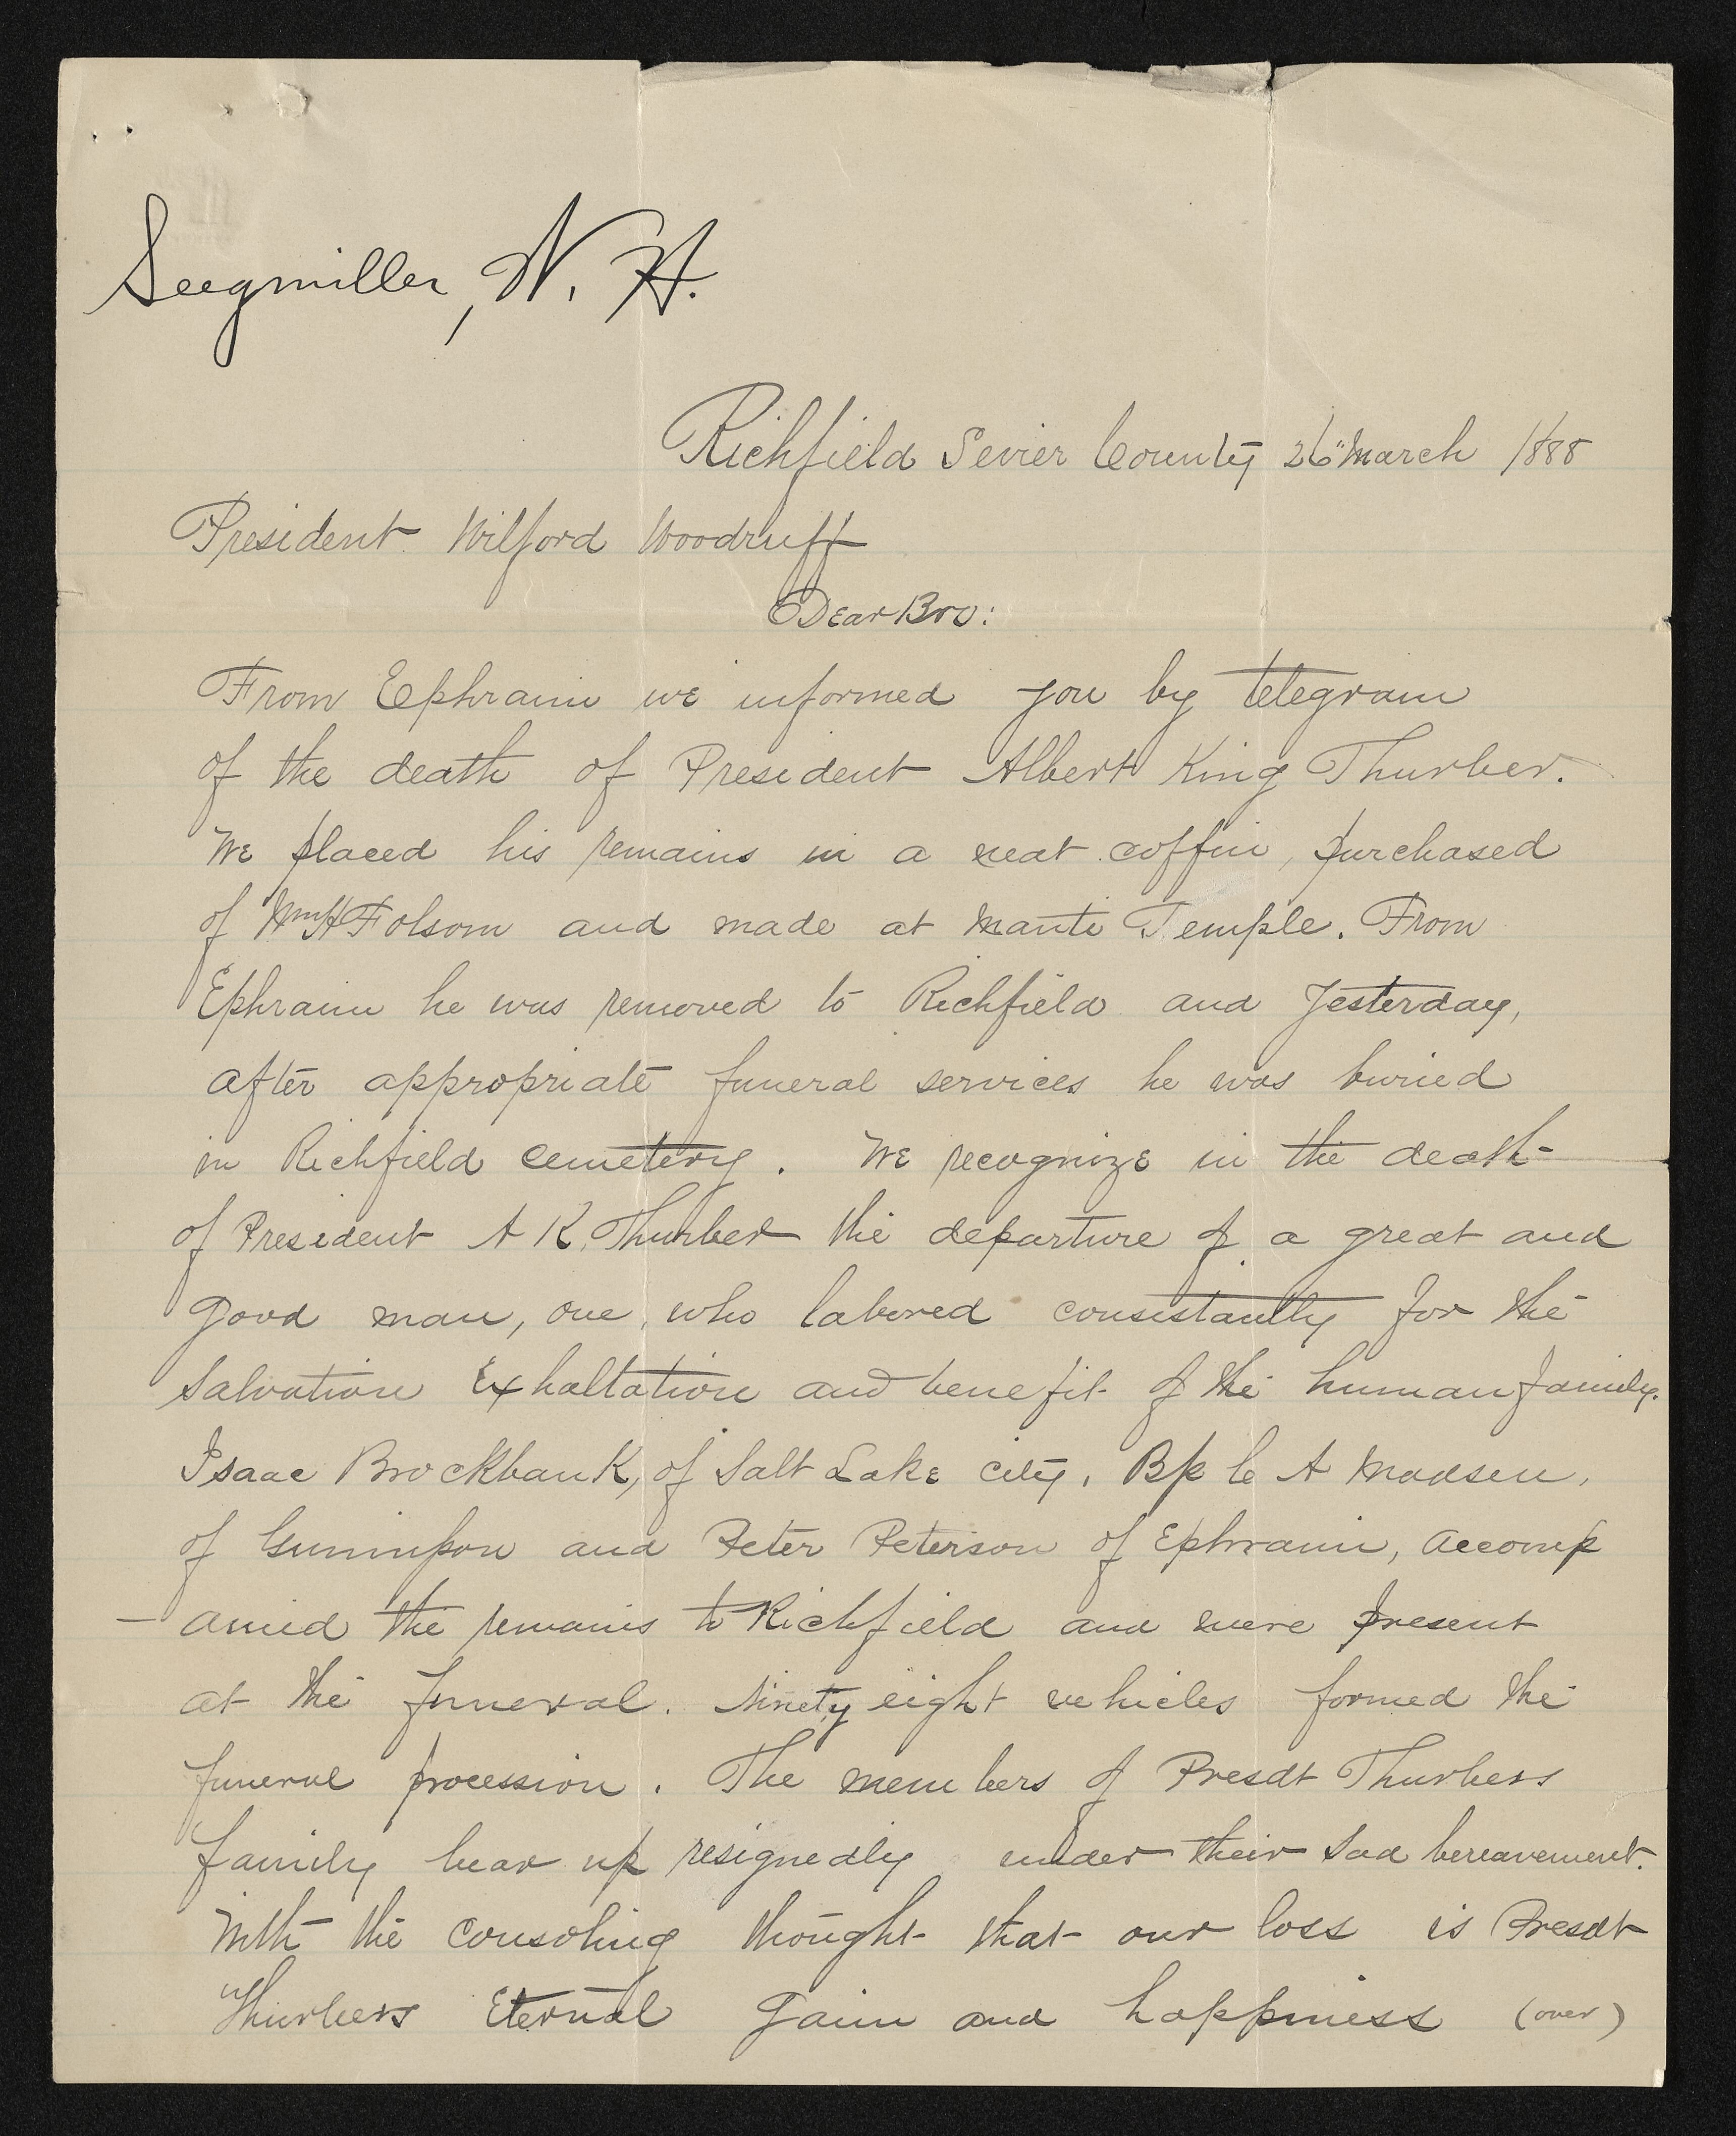 Seegmiller, W. H.
Richfield Sevier County 26" March 1888
President Wilford Woodruff
Dear Bro:
From Ephraim we informed you by telegram
of the death of President Albert King Thurber.
We placed his remains in a neat coffin, purchased
of Wm H Folsom and made at Manti Temple. From
Ephraim he was removed to Richfield and Yesterday,
after appropriate funeral services he was buried
in Richfield cemetery. We recognize in the death
of President A K. Thurber the departure of a great and
good man, one who labored consistantly for the
Salvation Exhaltation and benefit of the human family.
Isaac Brockbank, of Salt Lake city, Bp C A Madsen,
of Gunnison and Peter Peterson of Ephraim, accomp
-anied the remains to Richfield and were present
at the funeral. Ninety eight vehicles formed the
funeral procession. The members of Presdt Thurbers
family bear up resignedly under their sad bereavement.
With the consoling thought that our loss is Presdt
Thurbers Eternal gain and happiness (over)